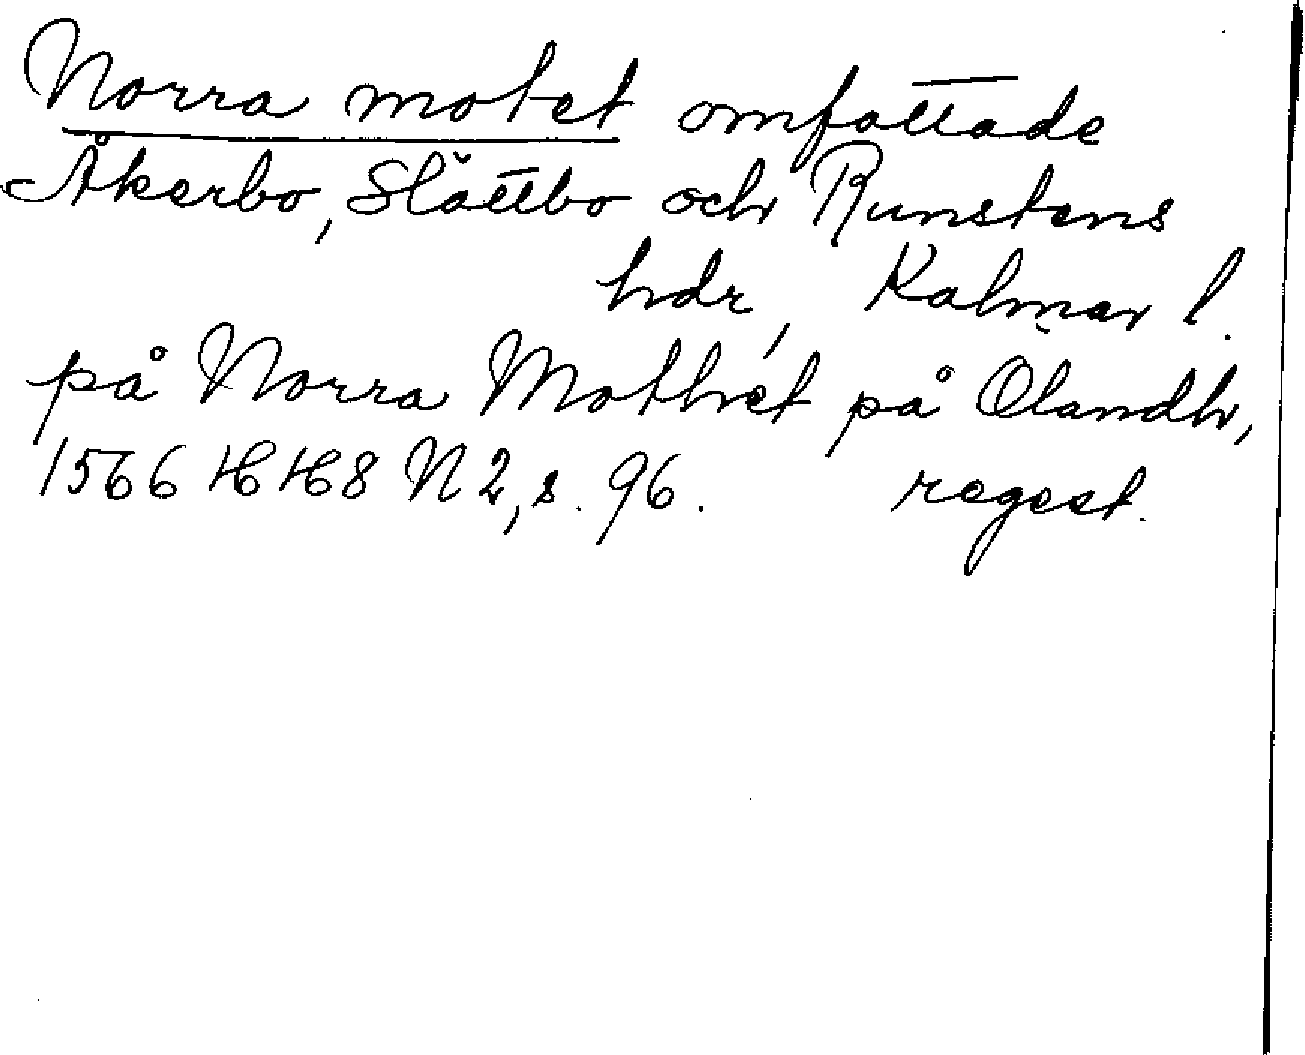 Norra motet omfattade
Åkerbo, Slättbo och Runstens
hdr, Kalmar l.
på Norra Mothet på Ölandh,
1566 HH 8 N 2, s. 96. regest.